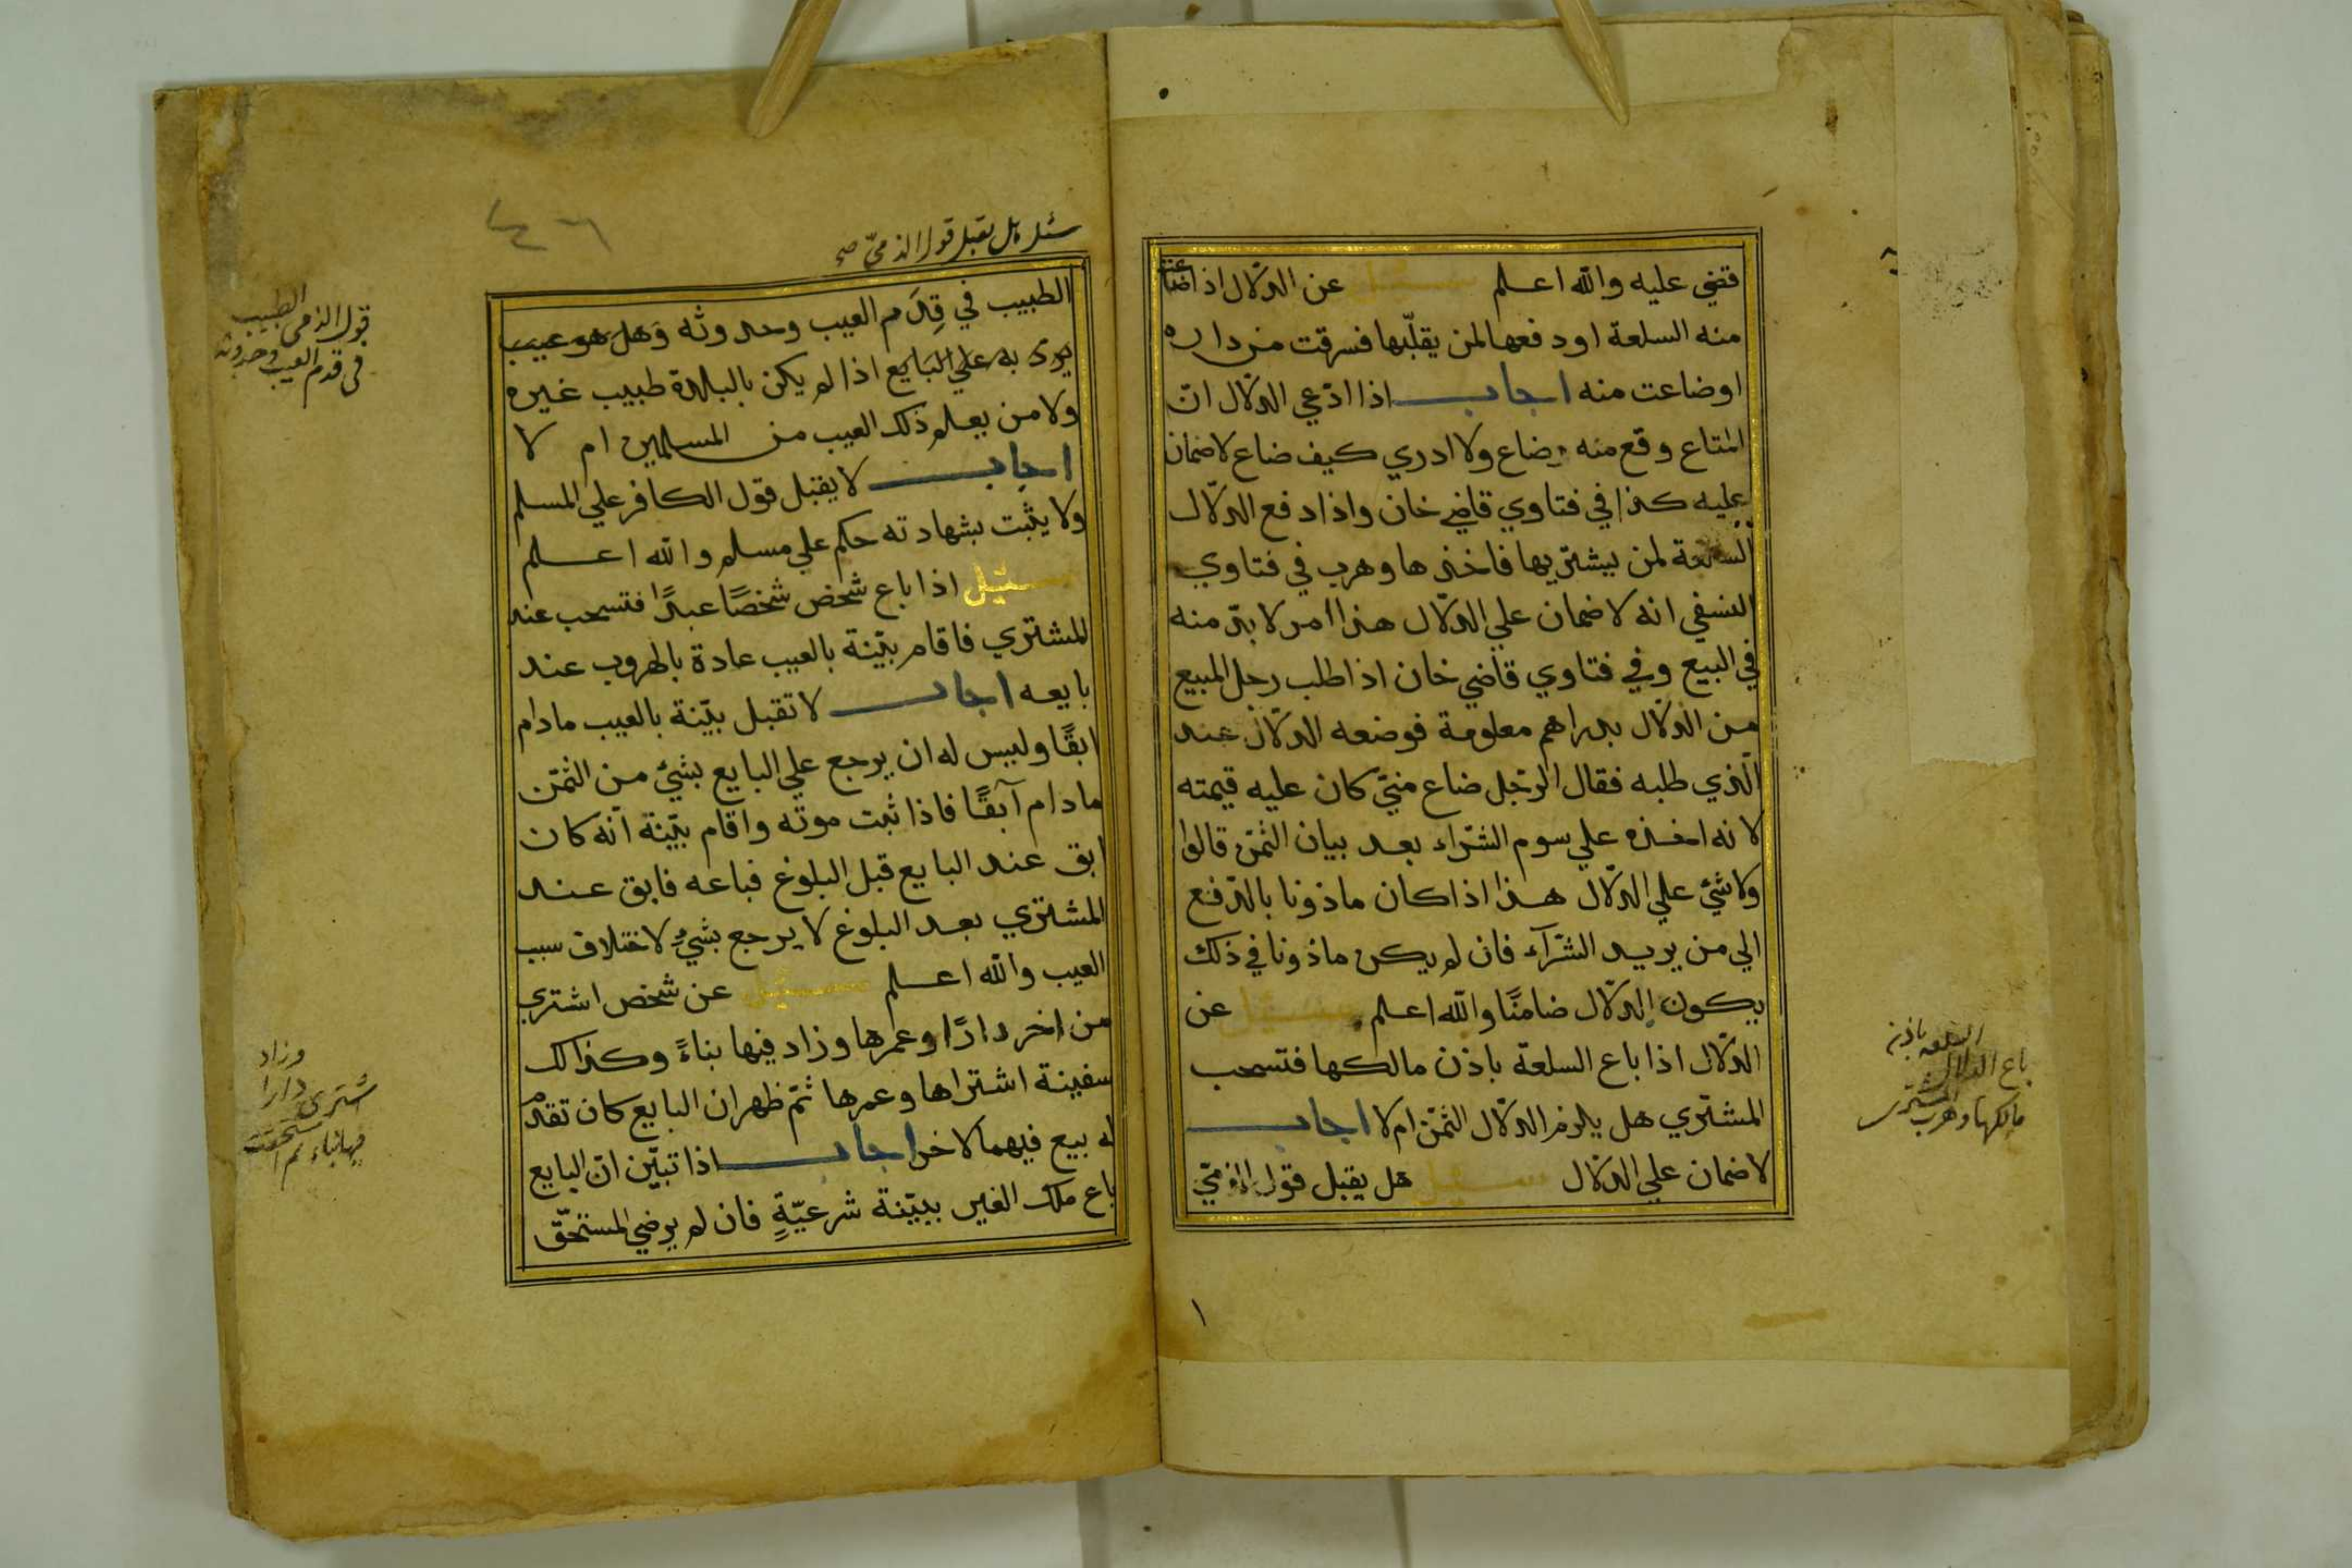 قضي عليه والله اعلم سئيل عن الدلّال اذا ضاعت
منه السلعة او دفعها لمن يقلّبها فسرقت من داره
او ضاعت منه اجاب اذا ادّعي الدلّال انّ
المتاع وقع منه وضاع ولا ادري كيف ضاع لا ضمان
عليه كذا في فتاوي قاضي خان واذا دفع الدلّال
السلعة لمن يشتريها فاخذها وهرب في فتاوي
النسفي انه لا ضمان علي الدلّال هذا امر لا بدّ منه
في البيع وفي فتاوي قاضي خان اذا طلب رجل المبيع
من الدلّال بدراهم معلومة فوضعه الدلّال عند
الّذي طلبه فقال الرّجل ضاع منّي كان عليه قيمته
لانه اخذه علي سوم الشّراء بعد بيان الثّمن قالوا
ولا شيئ علي الدلّال هذا اذا كان ماذونا بالدّفع
الي من يريد الشّرآء فان لم يكن ماذونا في ذلك
يكون الدلّال ضامنًا والله اعلم سئيل عن
الدلّال اذا باع السلعة باذن مالكها فتسحب
المشتري هل يلزم الدلّال الثّمن ام لا اجاب
لا ضمان علي الدلّال سئيل هل يقبل قول الذمّيّ
باع الدلال السلعه باذن
مالكها وهرب المشترى
١
سئل هل تقبل قول الذميّ صح
الطبيب في قِدَم العيب وحدوثه وهل هو عيب
يرد به علي البَايع اذا لم يكن بالبلدة طبيب غيره
ولا من يعلم ذلك العيب من المسلمين ام لا
اجاب لا يقبل قول الكافر علي المسلم
ولا يثبت بشهادته حكم علي مسلم والله اعلم
سئيل اذا باع شخص شخصًا عبدًا فتسحب عند
المشتري فاقام بيّنة بالعيب عادة بالهروب عند
بايعه اجاب لا تقبل بيّنة بالعيب مادام
ابقًا وليس له ان يرجع علي البايع بشيئ من الثّمن
مادام آبقًا فاذا ثبت موته واقام بيّنة انّه كان
ابق عند البايع قبل البلوغ فباعه فابق عند
المشتري بعد البلوغ لا يرجع بشيئٍ لاختلاف سبب
العيب والله اعلم سئيل عن شخص اشتري
من اخر دارًا وعمرها وزاد فيها بناءً وكذالك
سفينة اشتراها وعمرها ثمّ ظهر ان البايع كان تقدم
له بيع فيهما لاخر اجاب اذا تبيّن انّ البايع
باع ملك الغير ببيّنة شرعيّةٍ فان لم يرضي المستحقّ
قول الذمى الطبيب
فى قدم العيب وحدوثه
اشترى دارا وزاد
فيها بناء ثم استحقت